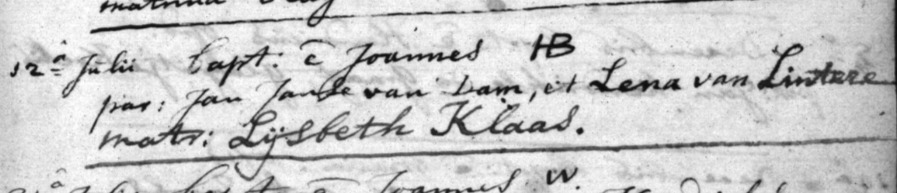 12ª Julii bapt: ē Joannes HB
par: Jan Janse van Dam, et Lena van Lintere
matr: Lijsbeth Klaas.
Joannes W.